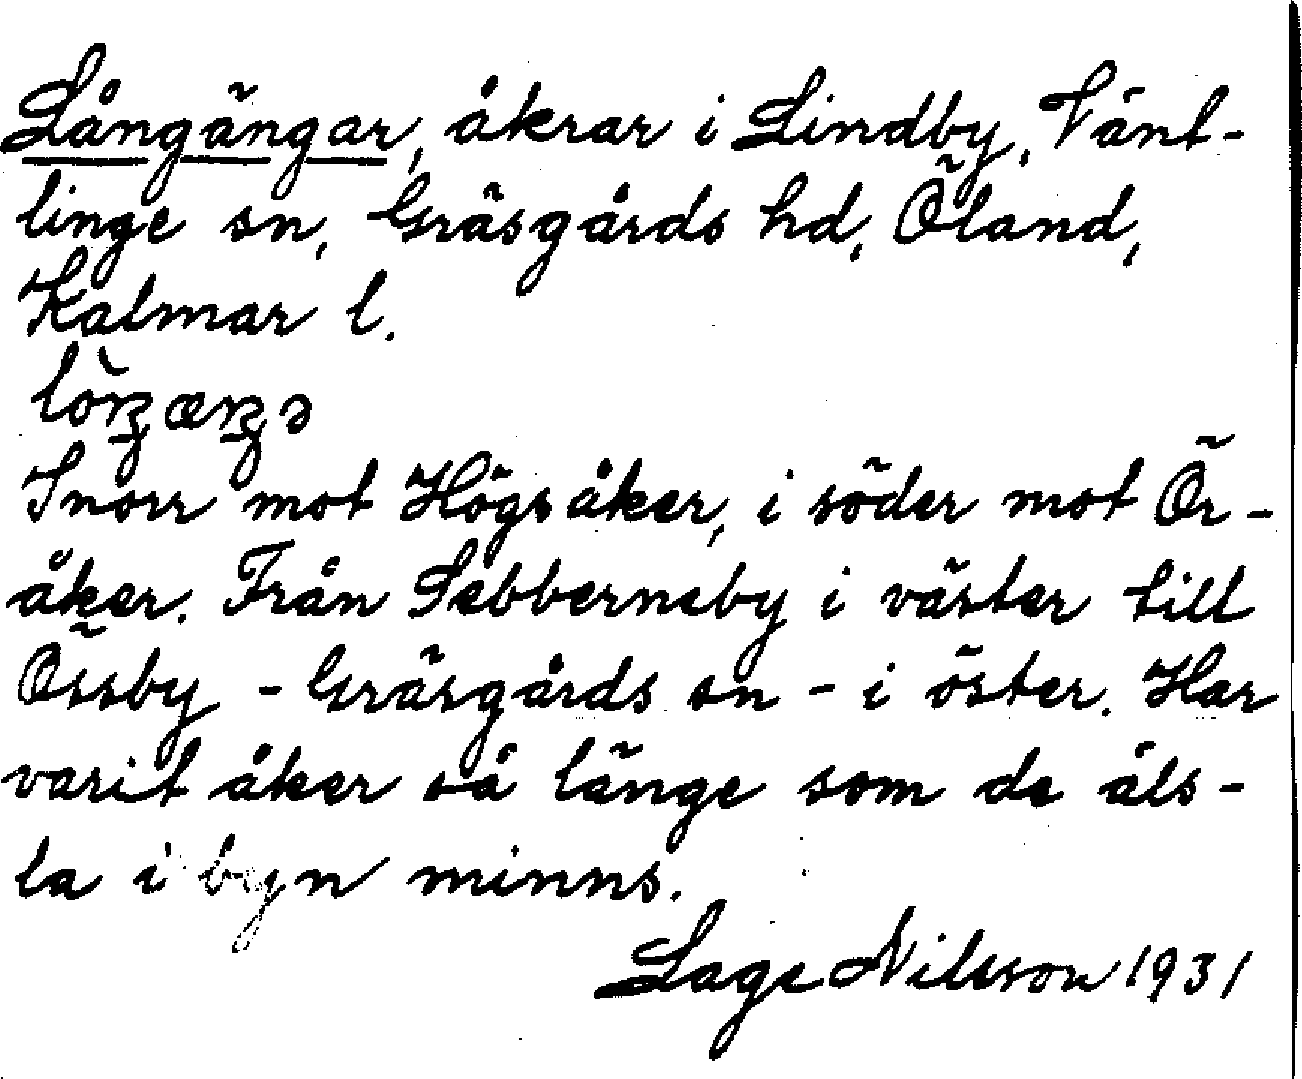 Långängar, åkrar i Lindby, Vänt-
linge sn, Gräsgårds hd, Öland,
Kalmar l.
lòŋæŋə
I norr mot Högsåker, i söder mot Ör-
åker. Från Sebberneby i väster till
Össby - Gräsgårds sn - i öster. Har
varit åker så länge som de äls-
ta i byn minns.
Lage Nilsson 1931